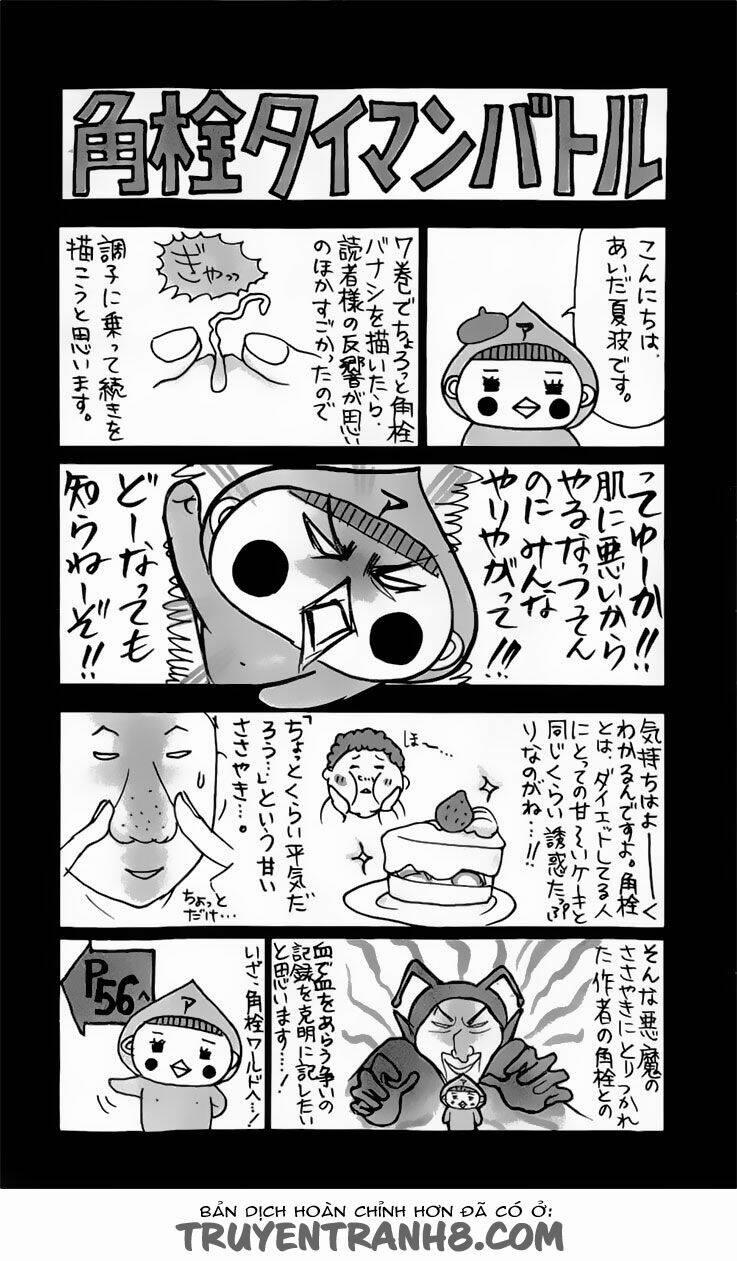 角栓タイマンバトル
こんにちは、
あいだ夏波です。
ア
7巻でちょろっと角栓
バナシを描いたら、
読者様の反響が思い
のほかすごかったので
ぎゃっっ
調子に乗って続きを
描こうと思います。
ってゆーか!!
肌に悪いから
やるなっつってん
のにみんな
やりやがって!!!
ア
どーなっても
知らねーぞ!!
気持ちはよーーく
わかるんですよ。角栓
とは、ダイエットしてる人
にとっての甘〜いケーキと
同じくらい誘惑たっぷ
りなのがね…!!
ほ〜…
「ちょっとくらい平気だ
ろう…」という甘い
ささやき…。
ちょっと
だけ…
そんな悪魔の
ささやきにとりつかれ
た作者の角栓との
血で血をあらう争いの
記録を克明に記したい
と思います…!
P56へ
ア
いざ、角栓ワールドへ…!
BẢN DỊCH HOÀN CHỈNH HƠN ĐÃ CÓ Ở:
TRUYENTRANH8.COM